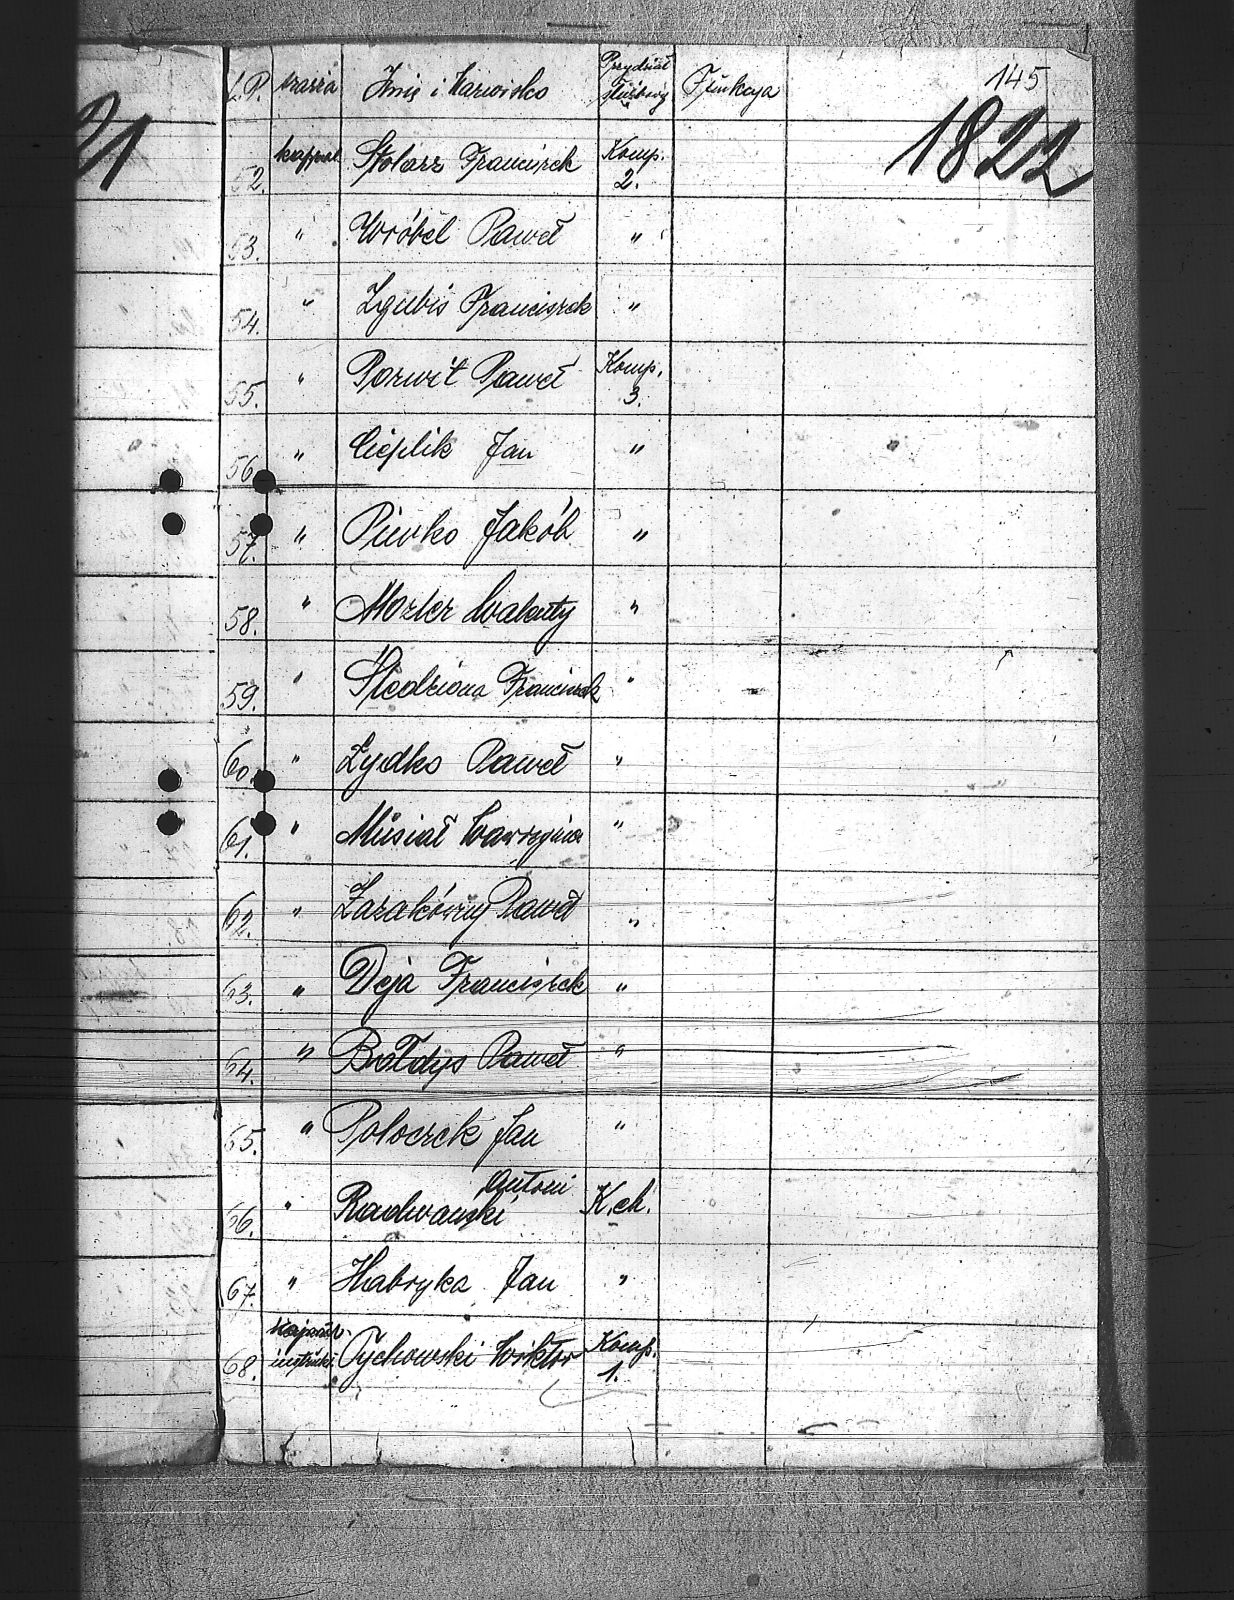 145
21
1822
L.P. szarża Imię i Nazwisko Przydział służbowy Funkcya
52. kapral Stolarz Franciszek Komp. 2.
53. " Wróbel Paweł "
54. " Zgubiś Franciszek "
55. " Porwit Paweł Komp. 3.
56. " Cieplik Jan "
57. " Piwko Jakób "
58. " Mozler Walenty "
59. " Śledziona Franciszek "
60. " Żydko Paweł "
61. " Musiał Wawrzyniec "
62. " Paweł "
63. " Deja Franciszek "
64. " Bołdys Paweł "
65. " Poloczek Jan "
66. " Radwański Antoni K.ch.
67. " Habryka Jan "
68. kapral instrukt. Tychowski Wiktor Komp. 1.